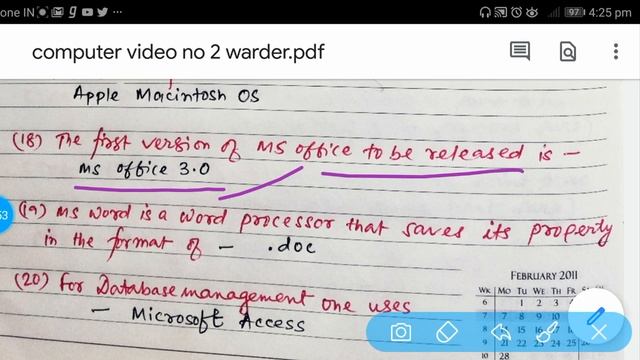 one IN
97 4:25 pm
computer video no 2 warder.pdf
Apple Macintosh OS
(18) The first version of MS office to be released is -
MS office 3.0
53
(19) MS word is a word processor that saves its property
in the format of - .doc
(20) For Database management one uses
- Microsoft Access
FEBRUARY 2011
WK MO TU WE TH FR
6 1 2 3
7 7 8 9 10
8 15 16
9 21 22 23 24 25
10 28